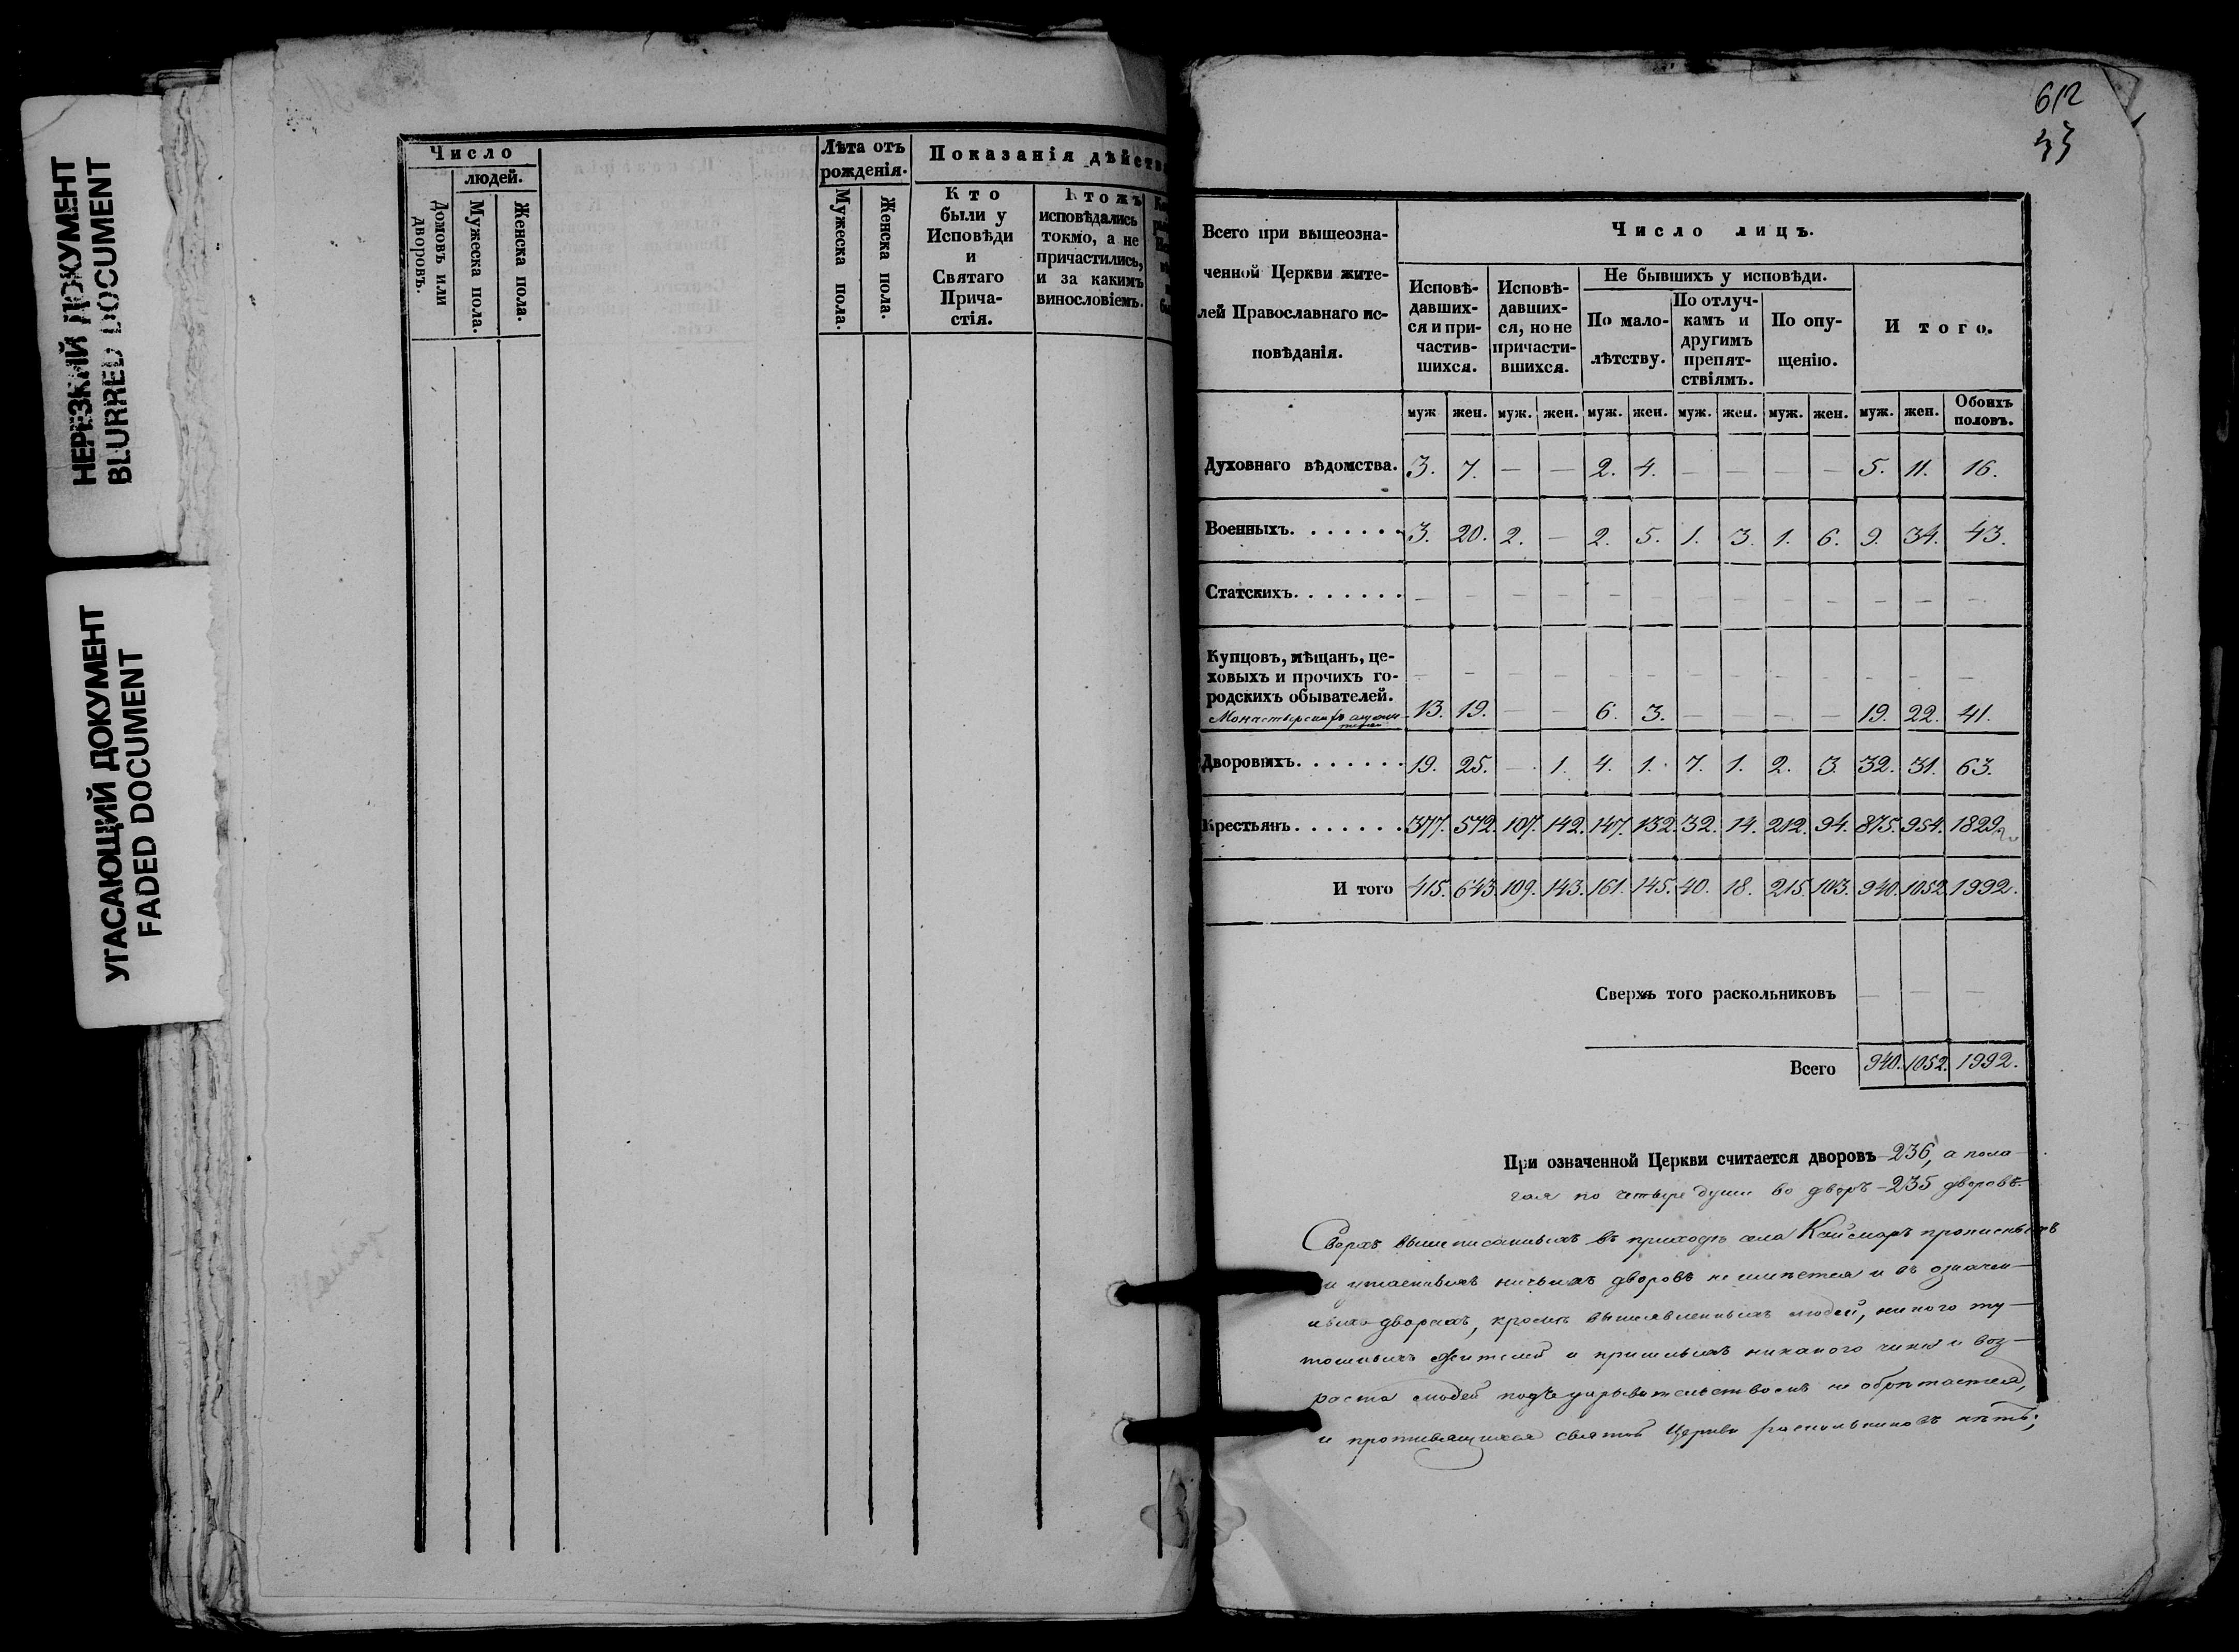 НЕРЕЗКИЙ ДОКУМЕНТ
BLURRED DOCUMENT
УГАСАЮЩИЙ ДОКУМЕНТ
FADED DOCUMENT
Число
людей.
Домовъ или дворовъ.
Мужеска пола.
Женска пола.
Лѣта отъ
рожденія.
Мужеска пола.
Женска пола.
Показанія дѣйств
Кто
были у
Исповѣди
и
Святаго
Прича-
стія.
Ктожъ
исповѣдались
токмо, а не
причастились,
и за какимъ
винословіемъ.
612
Всего при вышеозна-
ченной Церкви жите-
лей Православнаго ис-
повѣданія.
Число лицъ.
Исповѣ-
давших-
ся и при-
частив-
шихся.
Исповѣ-
давших-
ся, но не
причасти-
вшихся.
Не бывшихъ у исповѣди.
По мало-
лѣтству.
По отлуч-
камъ и
другимъ
препят-
ствіямъ.
По опу-
щенію.
И того.
муж жен. муж. жен. муж. жен. муж. жен. муж. жен. муж. жен. Обоихъ половъ.
Духовнаго вѣдомства. 3. 7. — — 2. 4. — — — — 5. 11. 16.
Военныхъ....... 3. 20. 2. — 2. 5. 1. 3. 1. 6. 9. 34. 43.
Статскихъ....... — — — — — — — — — — — — —
Купцовъ, мѣщанъ, це-
ховыхъ и прочихъ го-
родскихъ обывателей. — — — — — — — — — — — — —
Монастырскихъ 13. 19. — — 6. 3. — — — — 19. 22. 41.
Дворовыхъ....... 19. 25. — 1. 4. 1. 7. 1. 2. 3. 32. 31. 63.
Крестьянъ....... 377. 572. 107. 142. 147. 132. 32. 14. 212. 94. 875. 954. 1829.
И того 415. 643. 109. 143. 161. 145. 40. 18. 215. 103. 940. 1052. 1992.
Сверхъ того раскольниковъ — — —
Всего 940. 1052. 1992.
При означенной Церкви считается дворовъ 236, а пола-
гая по четыре души во дворъ - 235 дворовъ.
Сверхъ вышеписанныхъ въ приходѣ села Каймаръ прописныхъ
и утаенныхъ ничьихъ дворовъ не имѣется и въ означен-
ныхъ дворахъ, кромѣ вышеявленныхъ людей, никого ту-
тошнихъ жителей и пришлыхъ никакого чина и воз-
раста людей подъ укрывательствомъ не обрѣтается,
и противящихся святой Церкви раскольниковъ нѣтъ;